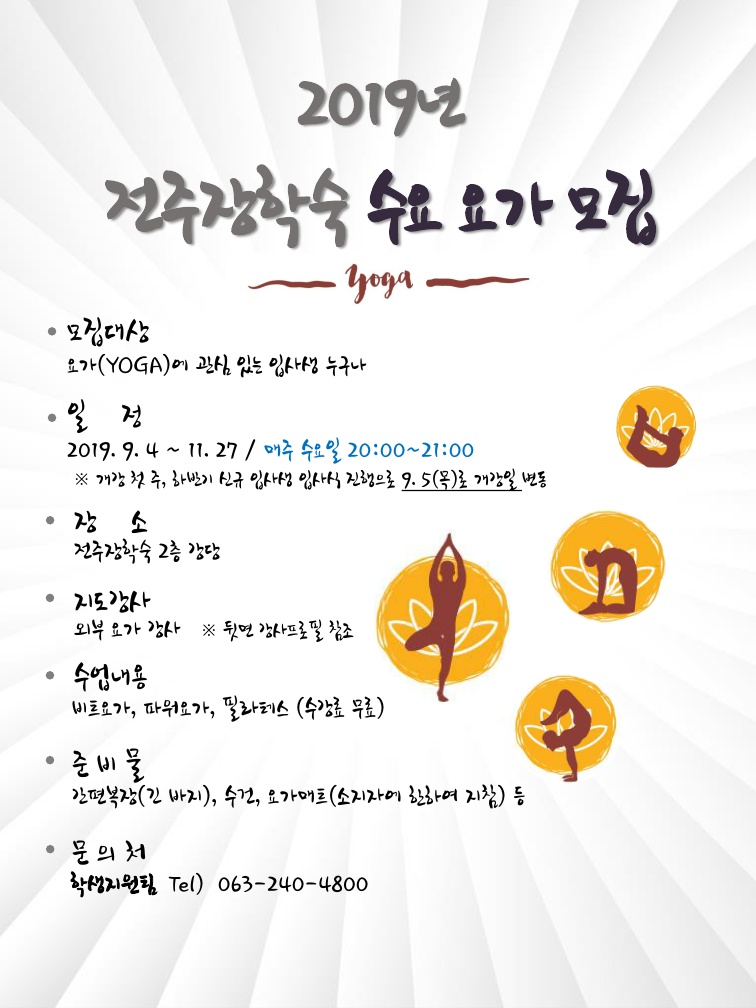 2019년
전주장학숙 수요 요가 모집
Yoga
• 모집대상
요가(YOGA)에 관심 있는 입사생 누구나
• 일 정
2019. 9. 4 ~ 11. 27 / 매주 수요일 20:00~21:00
※ 개강 첫 주, 하반기 신규 입사생 입사식 진행으로 9. 5(목)로 개강일 변동
• 장 소
전주장학숙 2층 강당
• 지도강사
외부 요가 강사 ※ 뒷면 강사프로필 참조
• 수업내용
비트요가, 파워요가, 필라테스 (수강료 무료)
• 준 비 물
간편복장(긴 바지), 수건, 요가매트(소지자에 한하여 지참) 등
• 문 의 처
학생지원팀 Tel) 063-240-4800